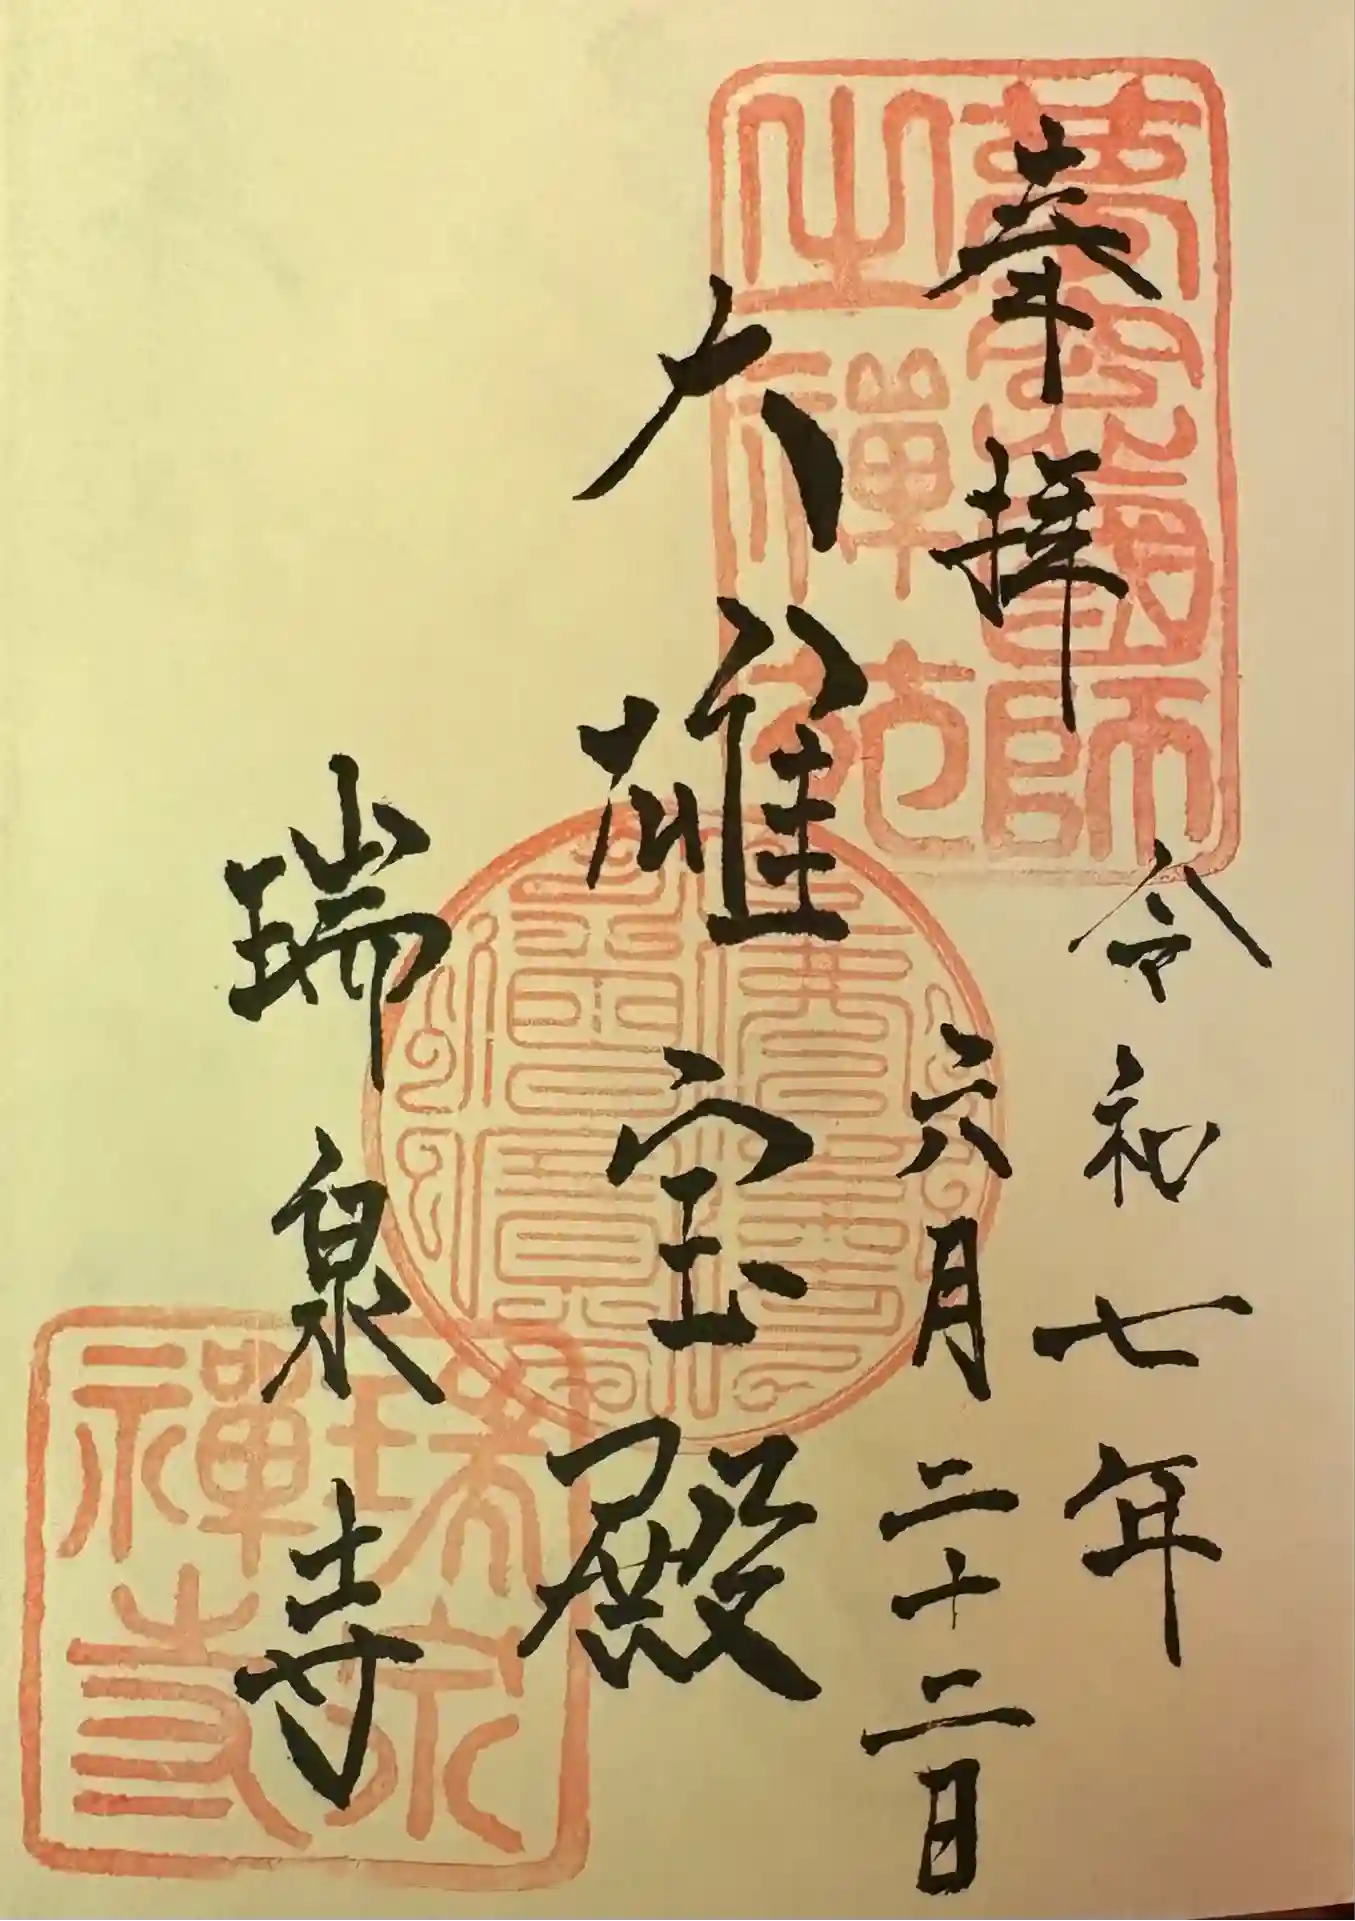 奉拝
令和七年
六月二十二日
大雄宝殿
瑞泉寺
夢窓國師
之禅苑
瑞泉
禅寺